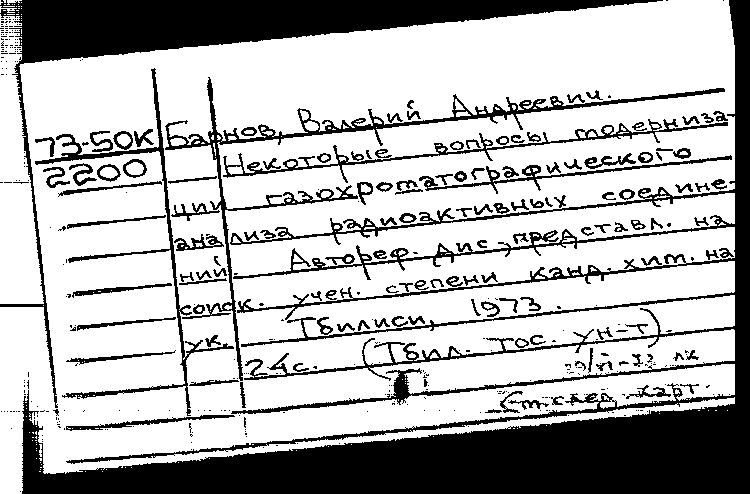 73-50к Барнов, Валерий Андреевич.
2200 Некоторые вопросы модерниза-
ции газохроматографического
анализа радиоактивных соедине-
ний. Автореф. дис., представл. на
соиск. учен. степени канд. хим. на
ук. Тбилиси, 1973.
24с. (Тбил. гос. ун-т).
См. след. карт.